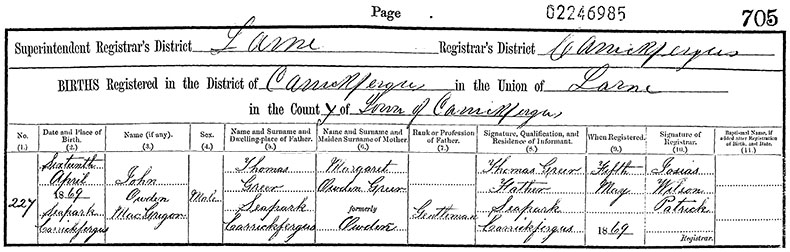 Page 02246985 705
Superintendent Registrar's District Larne Registrar's District Carrickfergus
BIRTHS Registered in the District of Carrickfergus in the Union of Larne
in the County of Town of Carrickfergus
No. (1.) Date and Place of Birth. (2.) Name (if any). (3.) Sex. (4.) Name and Surname and Dwelling-place of Father. (5.) Name and Surname and Maiden Surname of Mother. (6.) Rank or Profession of Father. (7.) Signature, Qualification, and Residence of Informant. (8.) When Registered. (9.) Signature of Registrar. (10.) Baptismal Name, if added after Registration of Birth, and Date. (11.)
227
Sixteenth
April
1869
Seapark
Carrickfergus
John
Owden
MacGregor
Male
Thomas
Greer
Seapark
Carrickfergus
Margaret
Owden Greer
formerly
Owden
Gentleman
Thomas Greer
Father
Seapark
Carrickfergus
Fifth
May
1869
Josias
Wilson
Patrick
Registrar.